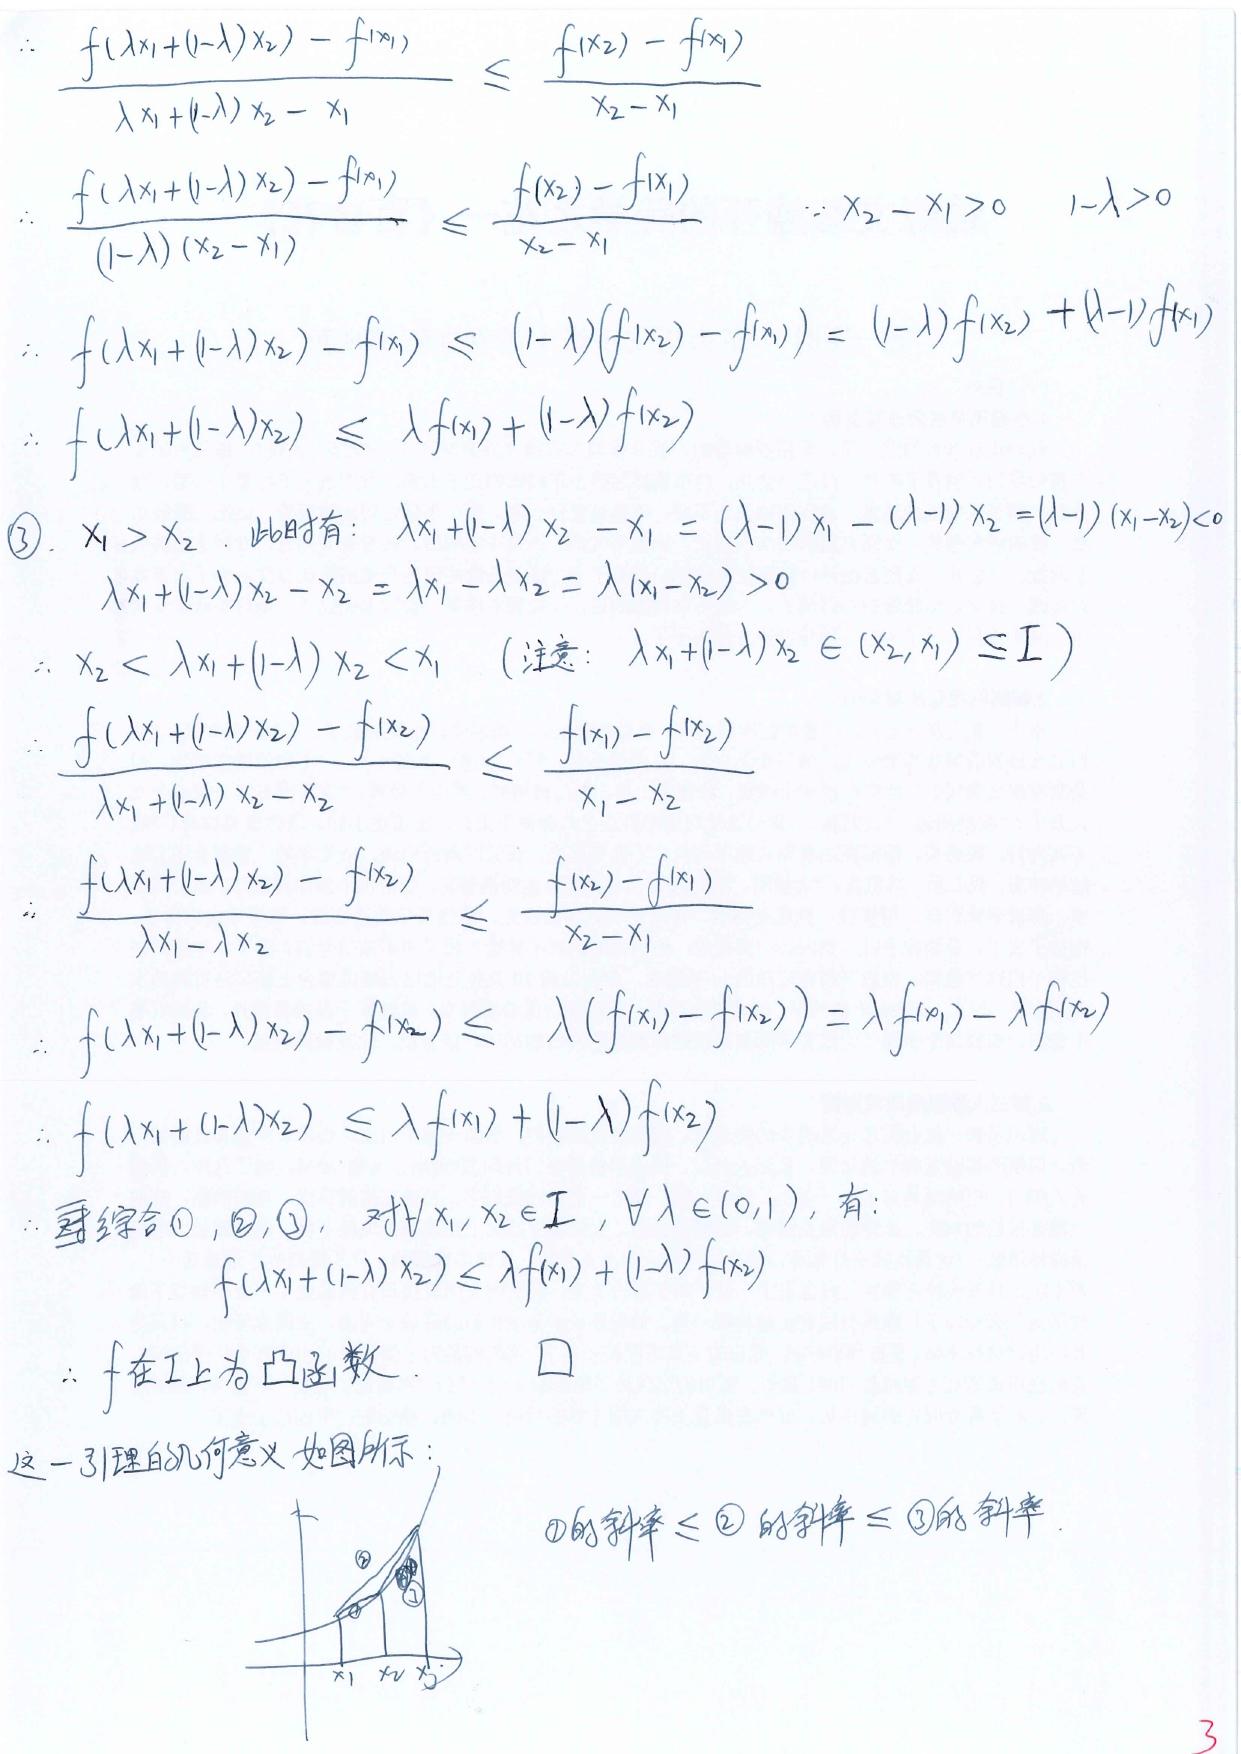 ∴ f(λx₁+(1-λ)x₂) - f(x₁) / λx₁+(1-λ)x₂ - x₁ ≤ f(x₂) - f(x₁) / x₂ - x₁
∴ f(λx₁+(1-λ)x₂) - f(x₁) / (1-λ)(x₂-x₁) ≤ f(x₂) - f(x₁) / x₂ - x₁ ∵ x₂ - x₁ > 0 1-λ > 0
∴ f(λx₁+(1-λ)x₂) - f(x₁) ≤ (1-λ)(f(x₂) - f(x₁)) = (1-λ)f(x₂) + (λ-1)f(x₁)
∴ f(λx₁+(1-λ)x₂) ≤ λf(x₁) + (1-λ)f(x₂)
③. x₁ > x₂ 此时有: λx₁+(1-λ)x₂ - x₁ = (λ-1)x₁ - (λ-1)x₂ = (λ-1)(x₁-x₂) < 0
λx₁+(1-λ)x₂ - x₂ = λx₁ - λx₂ = λ(x₁-x₂) > 0
∴ x₂ < λx₁+(1-λ)x₂ < x₁ (注意: λx₁+(1-λ)x₂ ∈ (x₂, x₁) ⊆ I)
∴ f(λx₁+(1-λ)x₂) - f(x₂) / λx₁+(1-λ)x₂ - x₂ ≤ f(x₁) - f(x₂) / x₁ - x₂
∴ f(λx₁+(1-λ)x₂) - f(x₂) / λx₁ - λx₂ ≤ f(x₂) - f(x₁) / x₂ - x₁
∴ f(λx₁+(1-λ)x₂) - f(x₂) ≤ λ(f(x₁) - f(x₂)) = λf(x₁) - λf(x₂)
∴ f(λx₁+(1-λ)x₂) ≤ λf(x₁) + (1-λ)f(x₂)
∴ 综合①,②,③ 对∀x₁, x₂∈I, ∀λ∈(0,1), 有:
f(λx₁+(1-λ)x₂) ≤ λf(x₁) + (1-λ)f(x₂)
∴ f在I上为凸函数. □
这一引理的几何意义如图所示:
①的斜率 ≤ ②的斜率 ≤ ③的斜率.
②
① ③
x₁ x₂ x₃
3